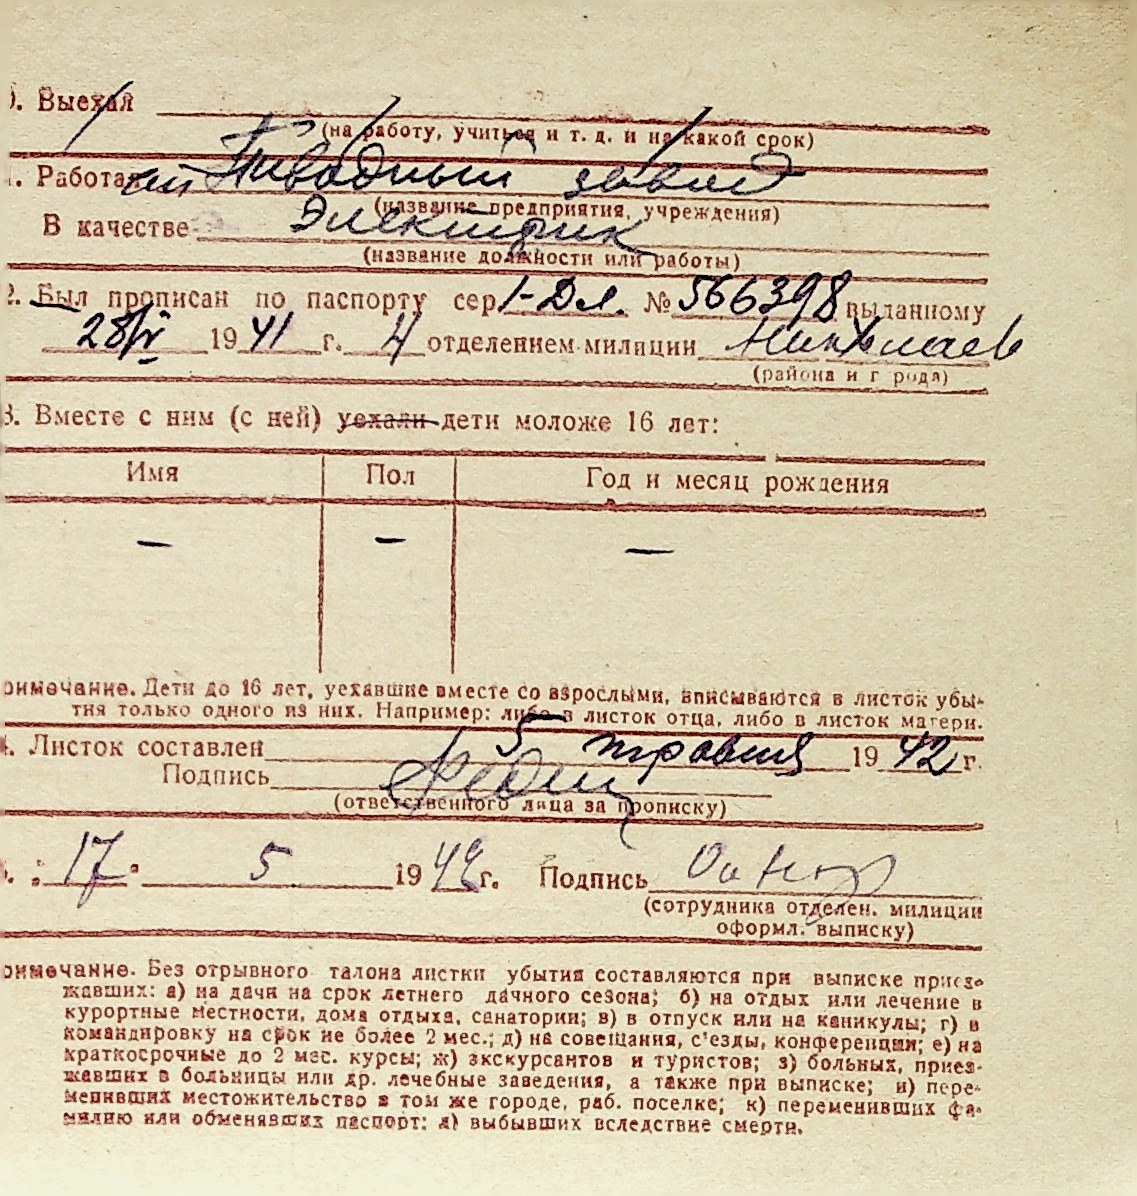 0. Выехал
(на работу, учиться и т. д. и на какой срок)
1. Работает Пивводный завод
(название предприятия, учреждения)
В качестве Электрик
(название должности или работы)
2. Был прописан по паспорту сер. 1-Дл. № 566398 выданному
28/IV 1941 г. 4 отделением милиции Николаев
(района и города)
3. Вместе с ним (с ней) уехали дети моложе 16 лет:
Имя Пол Год и месяц рождения
— — —
римечание. Дети до 16 лет, уехавшие вместе со взрослыми, вписываются в листок убы-
тия только одного из них. Например: либо в листок отца, либо в листок матери.
4. Листок составлен 5 травня 1942 г.
Подпись
(ответственного лица за прописку)
17 5 1942 г. Подпись
(сотрудника отделен. милиции
оформл. выписку)
римечание. Без отрывного талона листки убытия составляются при выписке приез-
жавших: а) на дачи на срок летнего дачного сезона; б) на отдых или лечение в
курортные местности, дома отдыха, санатории; в) в отпуск или на каникулы; г) в
командировку на срок не более 2 мес.; д) на совещания, с'езды, конференции; е) на
краткосрочные до 2 мес. курсы; ж) экскурсантов и туристов; з) больных, приез-
жавших в больницы или др. лечебные заведения, а также при выписке; и) пере-
менивших местожительство в том же городе, раб. поселке; к) переменивших фа-
милию или обменявших паспорт; л) выбывших вследствие смерти.